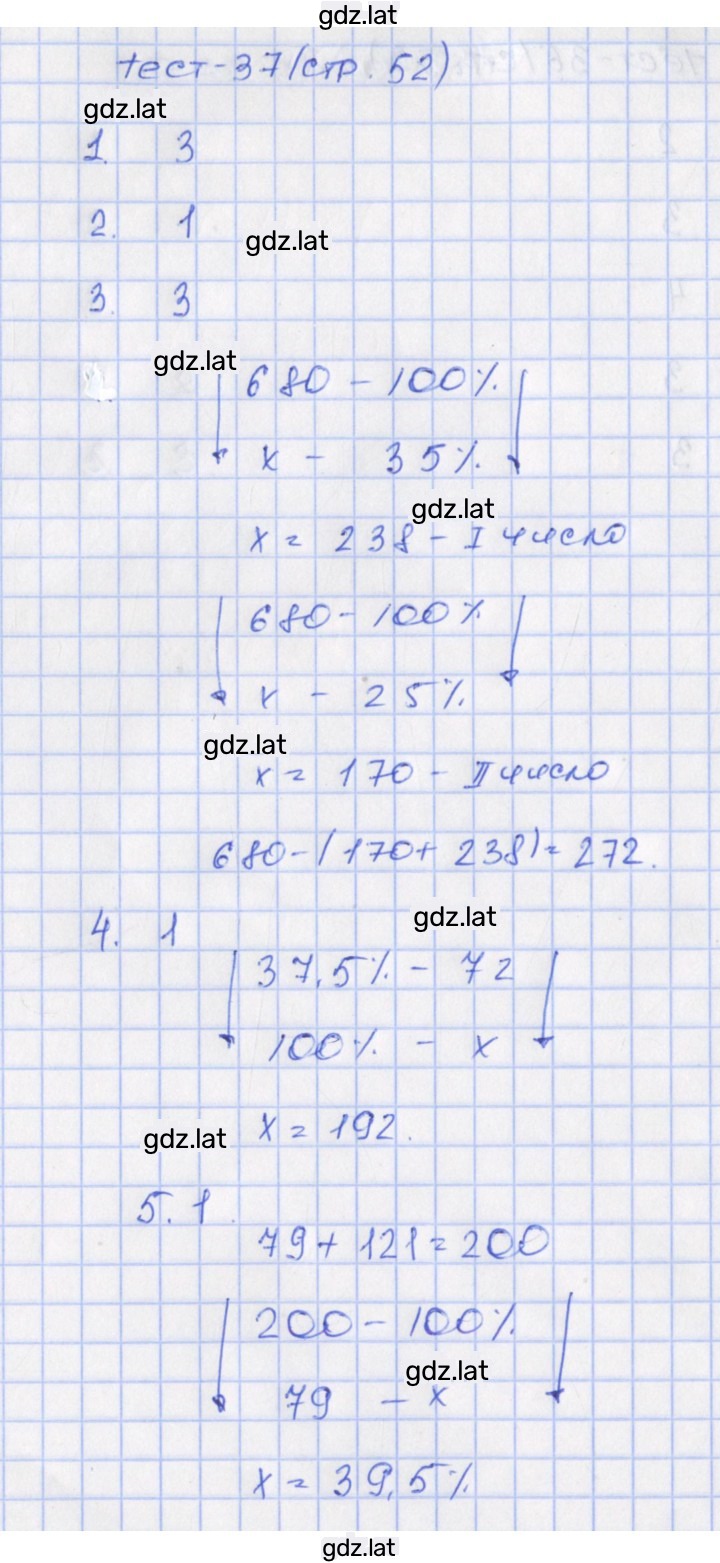 gdz.lat
тест-37 (стр. 52)
gdz.lat
1. 3
2. 1
gdz.lat
3. 3
gdz.lat
680 - 100%
x - 35%
gdz.lat
x = 238 - I число
680 - 100%
x - 25%
gdz.lat
x = 170 - II число
680 - (170 + 238) = 272.
gdz.lat
4. 1
37,5% - 72
100% - x
gdz.lat
x = 192.
5. 1.
79 + 121 = 200
200 - 100%
gdz.lat
79 - x
x = 39,5%
gdz.lat